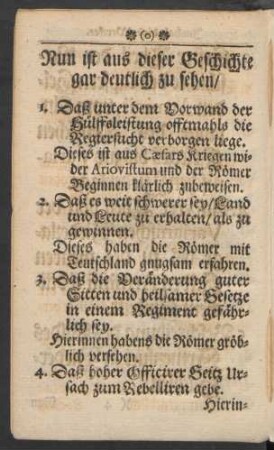 (o)
Nun ist aus dieser Geschichte
gar deutlich zu sehen/
1. Daß unter dem Vorwand der
Hülffsleistung offtmahls die
Regiersucht verborgen liege.
Dieses ist aus Cæsars Kriegen wi-
der Ariovistum und der Römer
Beginnen klärlich zubeweisen.
2. Daß es weit schwerer sey/ Land
und Leute zu erhalten/ als zu
gewinnen.
Dieses haben die Römer mit
Teutschland gnugsam erfahren.
3. Daß die Veränderung guter
Sitten und heilsamer Gesetze
in einem Regiment gefähr-
lich sey.
Hierinnen habens die Römer gröb-
lich versehen.
4. Daß hoher Officirer Geitz Ur-
sach zum Rebelliren gebe.
Hierin-